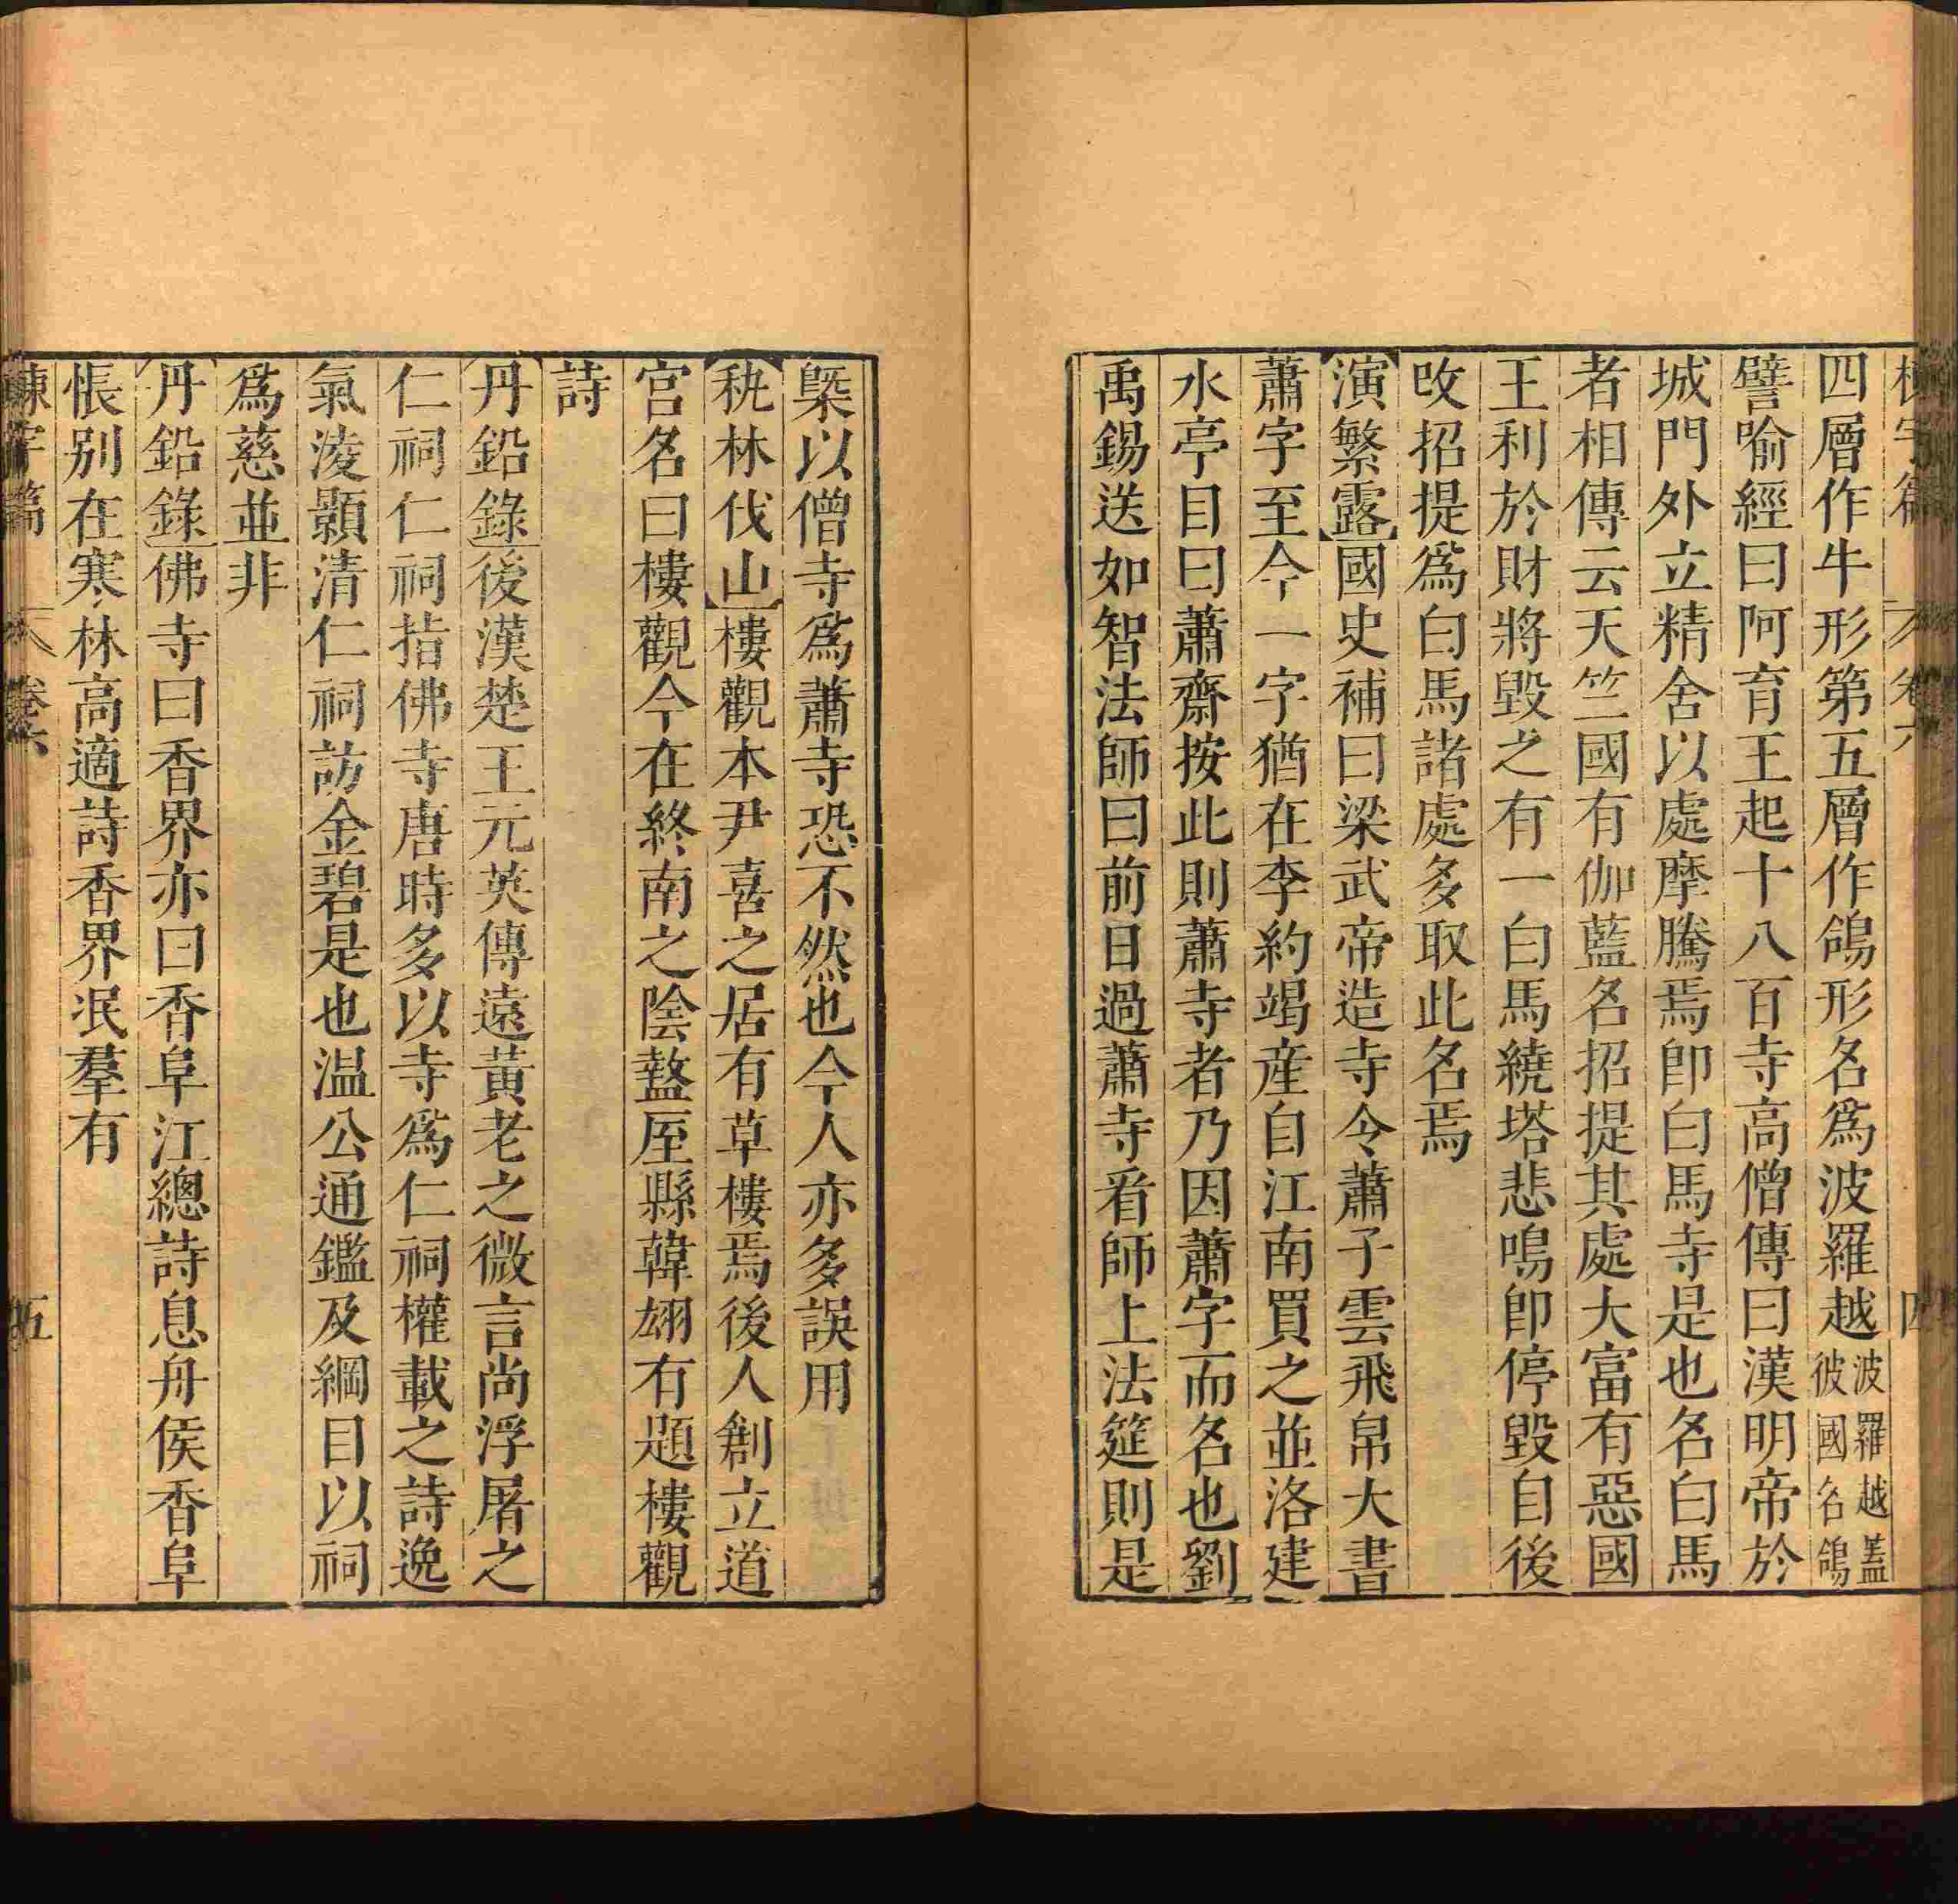 四層作牛形第五層作鴿形名爲波羅越波羅越蓋彼國名鴿
譬喻經曰阿育王起十八百寺高僧傳曰漢明帝於
城門外立精舍以處摩騰焉卽白馬寺是也名白馬
者相傳云天竺國有伽藍名招提其處大富有惡國
王利於財將毀之有一白馬繞塔悲鳴卽停毀自後
改招提爲白馬諸處多取此名焉
演繁露國史補曰梁武帝造寺令蕭子雲飛帛大書
蕭字至今一字猶在李約竭産自江南買之並洛建
水亭目曰蕭齋按此則蕭寺者乃因蕭字而名也劉
禹錫送如智法師曰前日過蕭寺看師上法筵則是
槩以僧寺爲蕭寺恐不然也今人亦多誤用
秇林伐山樓觀本尹喜之居有草樓焉後人創立道
宮名曰樓觀今在終南之陰盩厔縣韓翃有題樓觀
詩
丹鉛錄後漢楚王元英傳遠黃老之微言尚浮屠之
仁祠仁祠指佛寺唐時多以寺爲仁祠權載之詩逸
氣淩顥清仁祠訪金碧是也温公通鑑及綱目以祠
爲慈並非
丹鉛錄佛寺曰香界亦曰香阜江總詩息舟侯香阜
悵别在寒林高適詩香界泯羣有
卷六
五